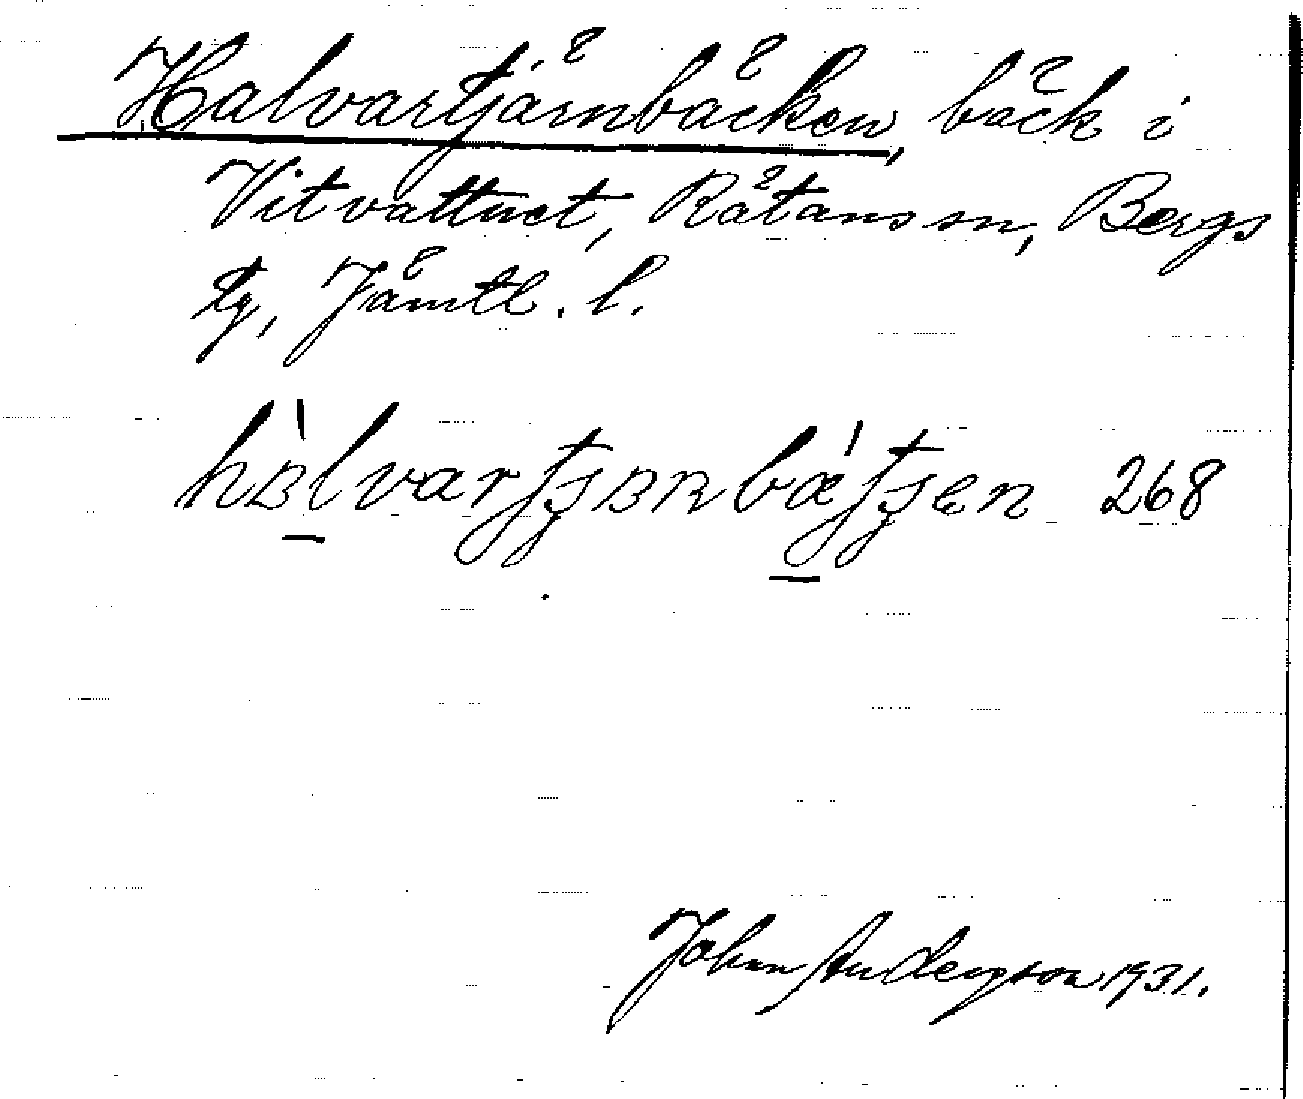 Halvartjärnbäcken, bäck i
Vitvattnet, Rätans sn, Bergs
tg, Jämtl. l.
268
John Anderson 1931.